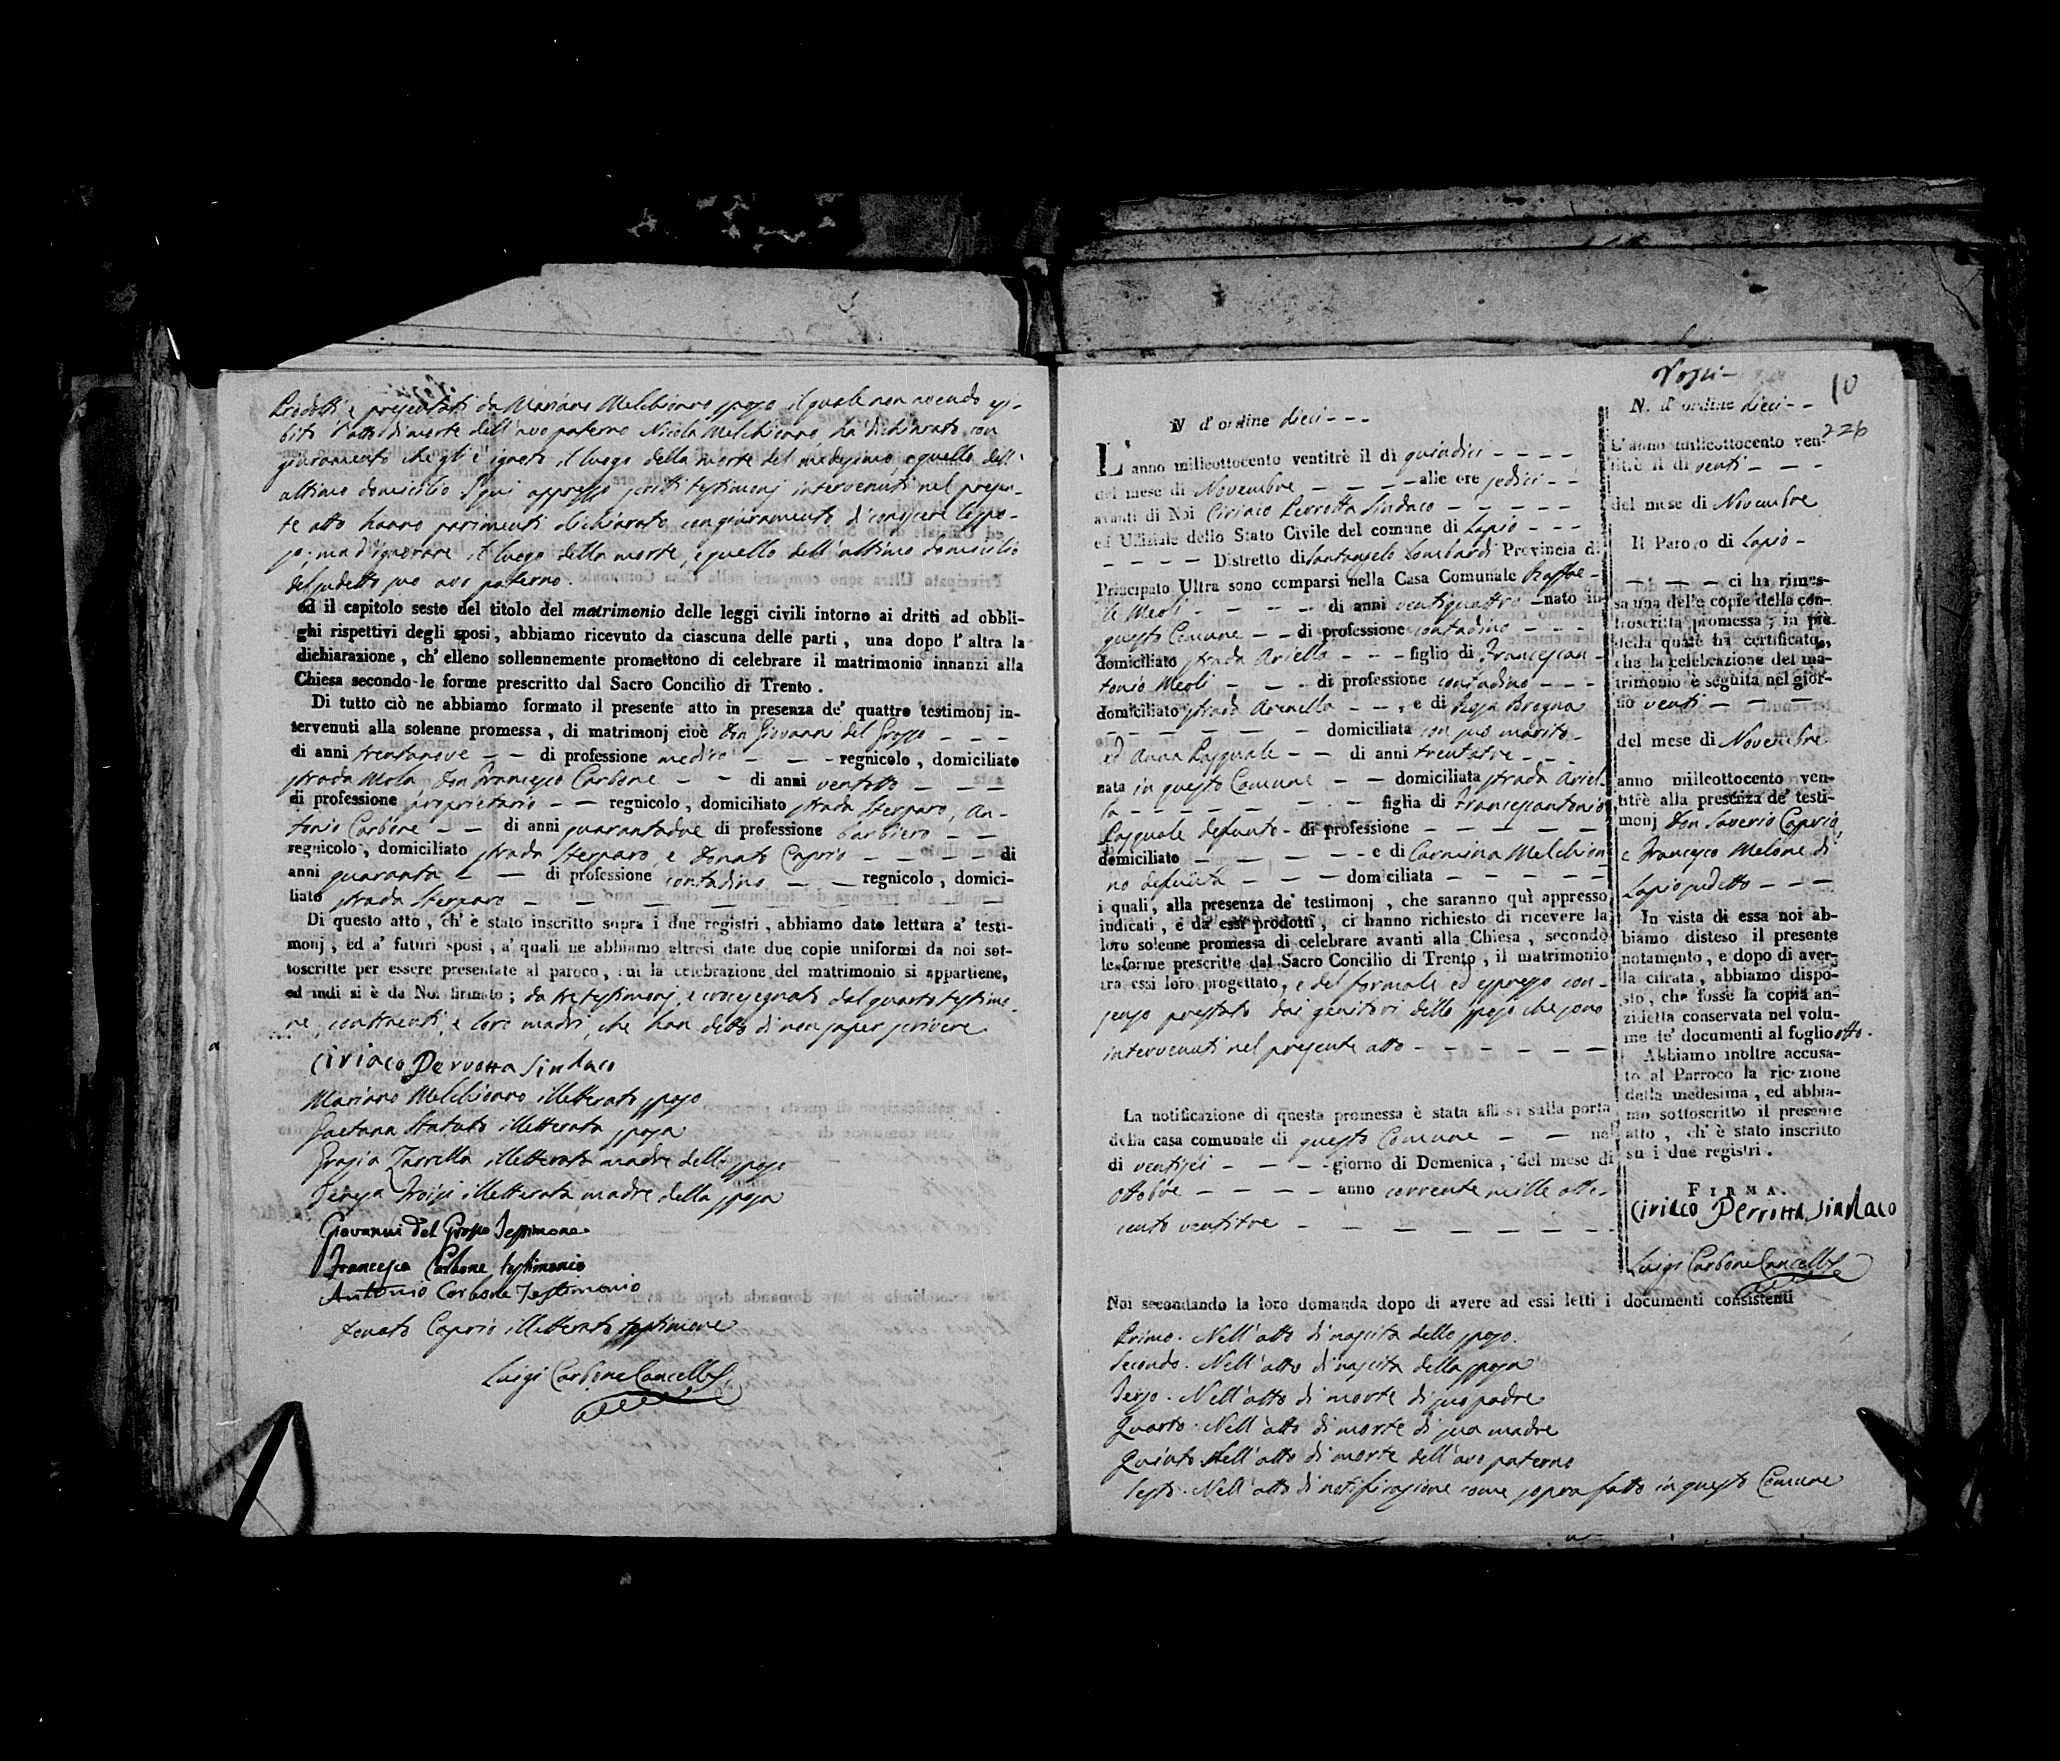 Prodotti e presentati da Mariano Melchionno sposo il quale non avendo esi-
bito l'atto di morte dell'avo paterno Nicola Melchionno, ha dichiarato con
giuramento che gli è ignoto il luogo della morte del medesimo e quello dell'
ultimo domicilio. I qui appresso scritti testimonj intervenuti nel presen-
te atto hanno parimenti dichiarato con giuramento di conoscere lo spo-
so; ma d'ignorare il luogo della morte, e quello dell'ultimo domicilio
del sudetto suo avo paterno.
ed il capitolo sesto del titolo del matrimonio delle leggi civili intorno ai dritti ad obbli-
ghi rispettivi degli sposi, abbiamo ricevuto da ciascuna delle parti, una dopo l'altra la
dichiarazione, ch'elleno sollennemente promettono di celebrare il matrimonio innanzi alla
Chiesa secondo le forme prescritto dal Sacro Concilio di Trento.
Di tutto ciò ne abbiamo formato il presente atto in presenza de' quattro testimonj in-
tervenuti alla solenne promessa, di matrimonj cioè Don Giovanni del Grosso - - -
di anni trentanove - - di professione medico - - - regnicolo, domiciliato
strada Mola, Don Francesco Carbone - - di anni ventotto - - -
di professione proprietario - - regnicolo, domiciliato strada Sterparo, An-
tonio Carbone - - di anni quarantadue di professione barbiero - -
regnicolo, domiciliato strada Sterparo, e Donato Caprio - - - - di
anni quaranta - - di professione contadino - - regnicolo, domici-
liato strada Sterparo - - - - - - -
Di questo atto, ch'è stato inscritto sopra i due registri, abbiamo dato lettura a' testi-
monj, ed a' futuri sposi, a' quali ne abbiamo altresì date due copie uniformi da noi sot-
toscritte per essere presentate al paroco, cui la celebrazione del matrimonio si appartiene,
ed indi si è da Noi firmato; da tre testimonj, e crocesegnato dal quarto testimo-
ne, contraenti, e loro madri, che han detto di non saper scrivere
Ciriaco Perrotta Sindaco
Mariano Melchionno illetterato sposo
Gaetana Statuto illetterata sposa
Grazia Zarrella illetterata madre dello sposo
Teresa Troisi illetterata madre della sposa
Giovanni del Grosso Testimone
Francesco Carbone testimonio
Antonio Carbone Testimonio
Donato Caprio illetterato testimone
Luigi Carbone Cancell.
10
226
N d'ordine dieci - - -
L'anno milleottocento ventitrè il dì quindici - - - -
del mese di Novembre - - - - alle ore sedici - -
avanti di Noi Ciriaco Perrotta Sindaco - - - - -
ed Uffiziale dello Stato Civile del comune di Lapio - - -
- - - - Distretto di Santangelo Lombardi Provincia di
Principato Ultra sono comparsi nella Casa Comunale Raffae-
le Meoli - - - - di anni ventiquattro - nato in
questo Comune - - di professione contadino - - -
domiciliato strada Ariella - - - figlio di Francescan-
tonio Meoli - - - di professione contadino - - -
domiciliato strada Arinella - - -, e di Rosa Brogna
- - - - - - domiciliata con suo marito -
ed Anna Pasquale - - di anni trentatre - - -
nata in questo Comune - - domiciliata strada Ariel-
la - - - - - - figlia di Francescantonio
Pasquale defunto - di professione - - - - -
domiciliato - - - - - e di Carmina Melchion-
no defunta - - - domiciliata - - - - -
i quali, alla presenza de' testimonj, che saranno quì appresso
indicati, e da essi prodotti, ci hanno richiesto di ricevere la
loro solenne promessa di celebrare avanti alla Chiesa, secondo
le forme prescritte dal Sacro Concilio di Trento, il matrimonio
tra essi loro progettato, e del formale ed espresso con-
senso prestato dai genitori dello sposo che sono
intervenuti nel presente atto - - - - - -
La notificazione di questa promessa è stata affissa sulla porta
della casa comunale di questo Comune - - nel
di ventisei - - - - giorno di Domenica, del mese di
ottobre - - - - anno corrente mille otto-
cento ventitre - - - - - - -
N. d'ordine dieci - -
L'anno milleottocento ven-
titrè il di venti - - -
del mese di Novembre
Il Paroco di Lapio -
- - - - ci ha rimes-
sa una delle copie della con-
troscritta promessa; in piè
della quale ha certificato,
che la celebrazione del ma-
trimonio è seguita nel gior-
no venti - - -
del mese di Novembre
anno milleottocento ven-
titrè alla presenza de' testi-
monj Don Saverio Caprio
e Francesco Melone di
Lapio sudetto - - -
In vista di essa noi ab-
biamo disteso il presente
notamento, e dopo di aver-
la cifrata, abbiamo dispo-
sto, che fosse la copia an-
zidetta conservata nel volu-
me de' documenti al foglio otto.
Abbiamo inoltre accusa-
to al Parroco la ricezione
della medesima, ed abbia-
mo sottoscritto il presente
atto, ch'è stato inscritto
su i due registri.
FIRMA.
Ciriaco Perrotta Sindaco
Luigi Carbone Cancell.
Noi secondando la loro domanda dopo di avere ad essi letti i documenti consistenti
Primo. Nell'atto di nascita dello sposo.
Secondo. Nell'atto di nascita della sposa
Terzo. Nell'atto di morte di suo padre
Quarto. Nell'atto di morte di sua madre
Quinto. Nell'atto di morte dell'avo paterno
Sesto. Nell'atto di notificazione come sopra fatto in questo Comune